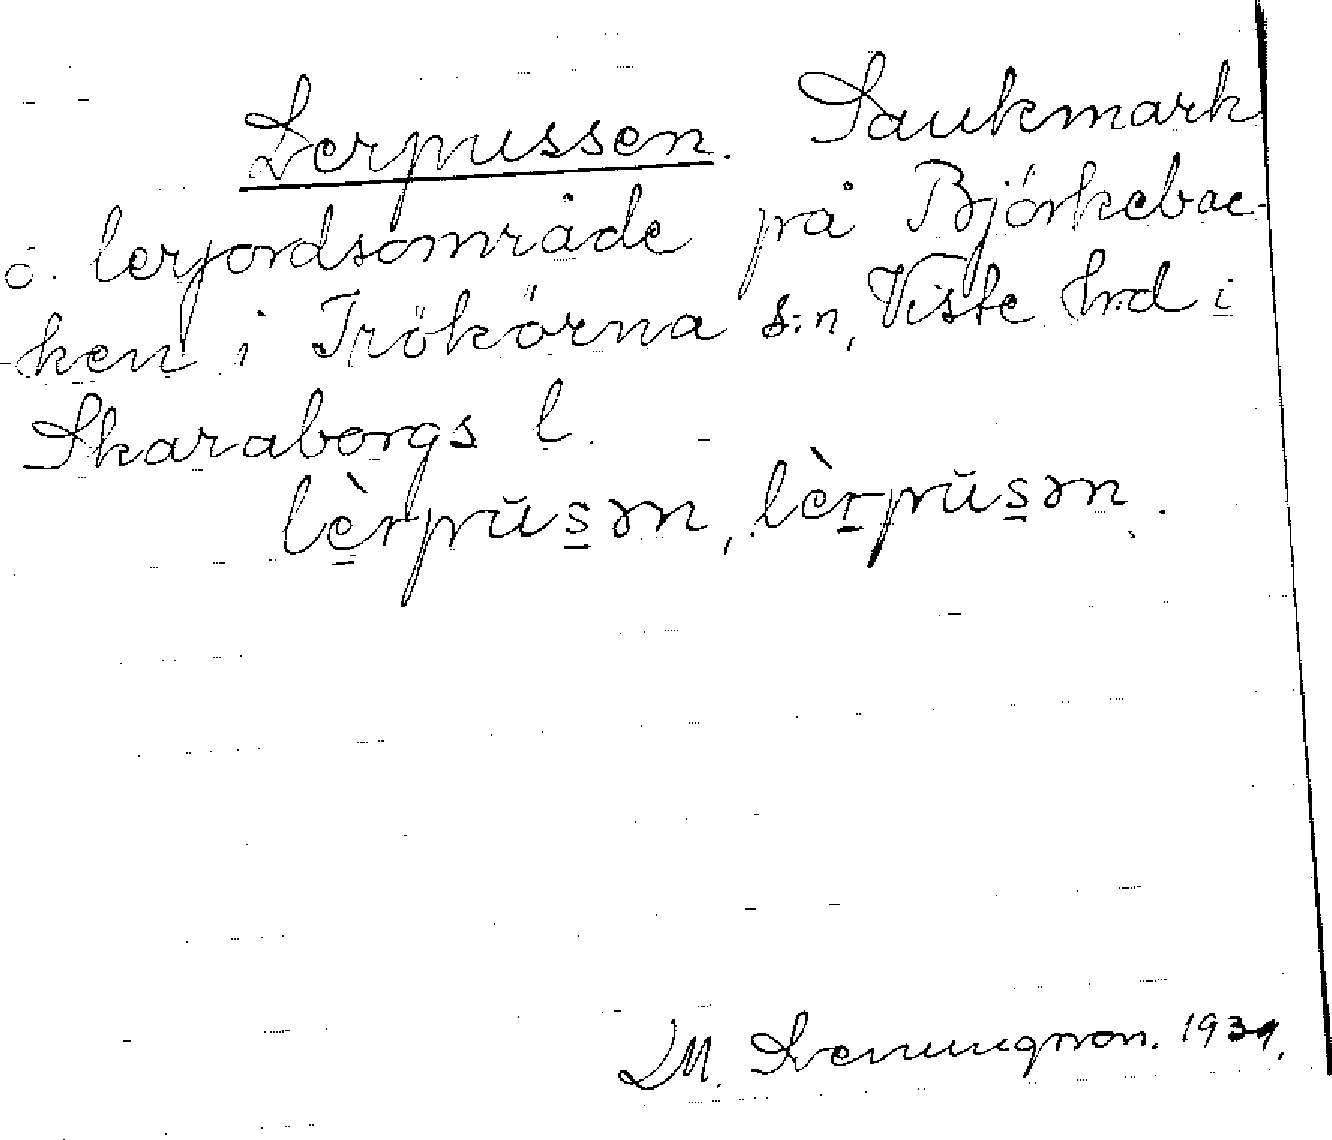 Lerpussen. Saukmark
o. lerjordsområde på Björkebac-
ken i Trökörna s:n, Viste hrd i
Skaraborgs l.
lè̱rpŭs̱ən, lèṟpŭs̱ən.
1939.